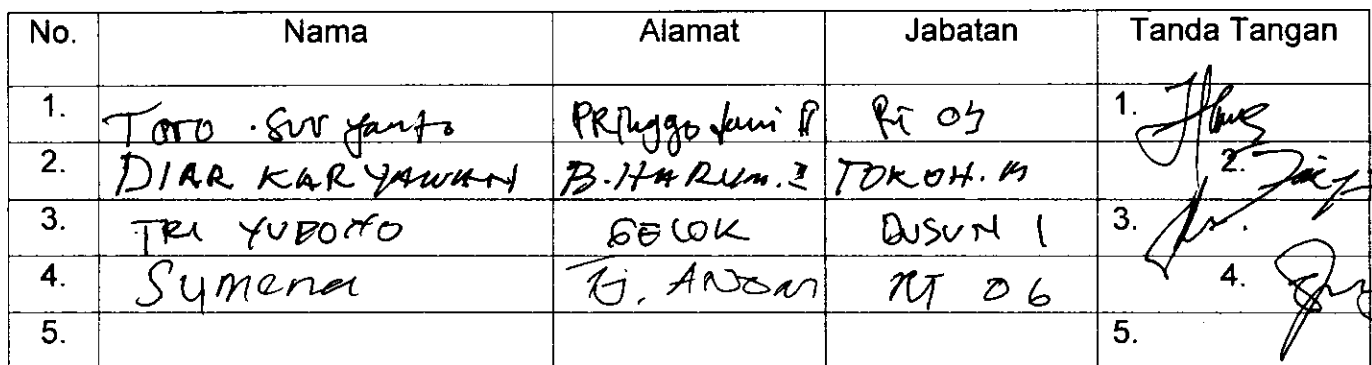 No. Nama Alamat Jabatan Tanda Tangan
1. Toro . Suryanto PRinggo Jani II RT 05 1.
2. DIAR KARYAWAN B.HARUM. I TOKOH. M 2.
3. TRI YUDONO GELOK DUSUN 1 3.
4. Sumena Tj. ANOM RT 06 4.
5. 5.